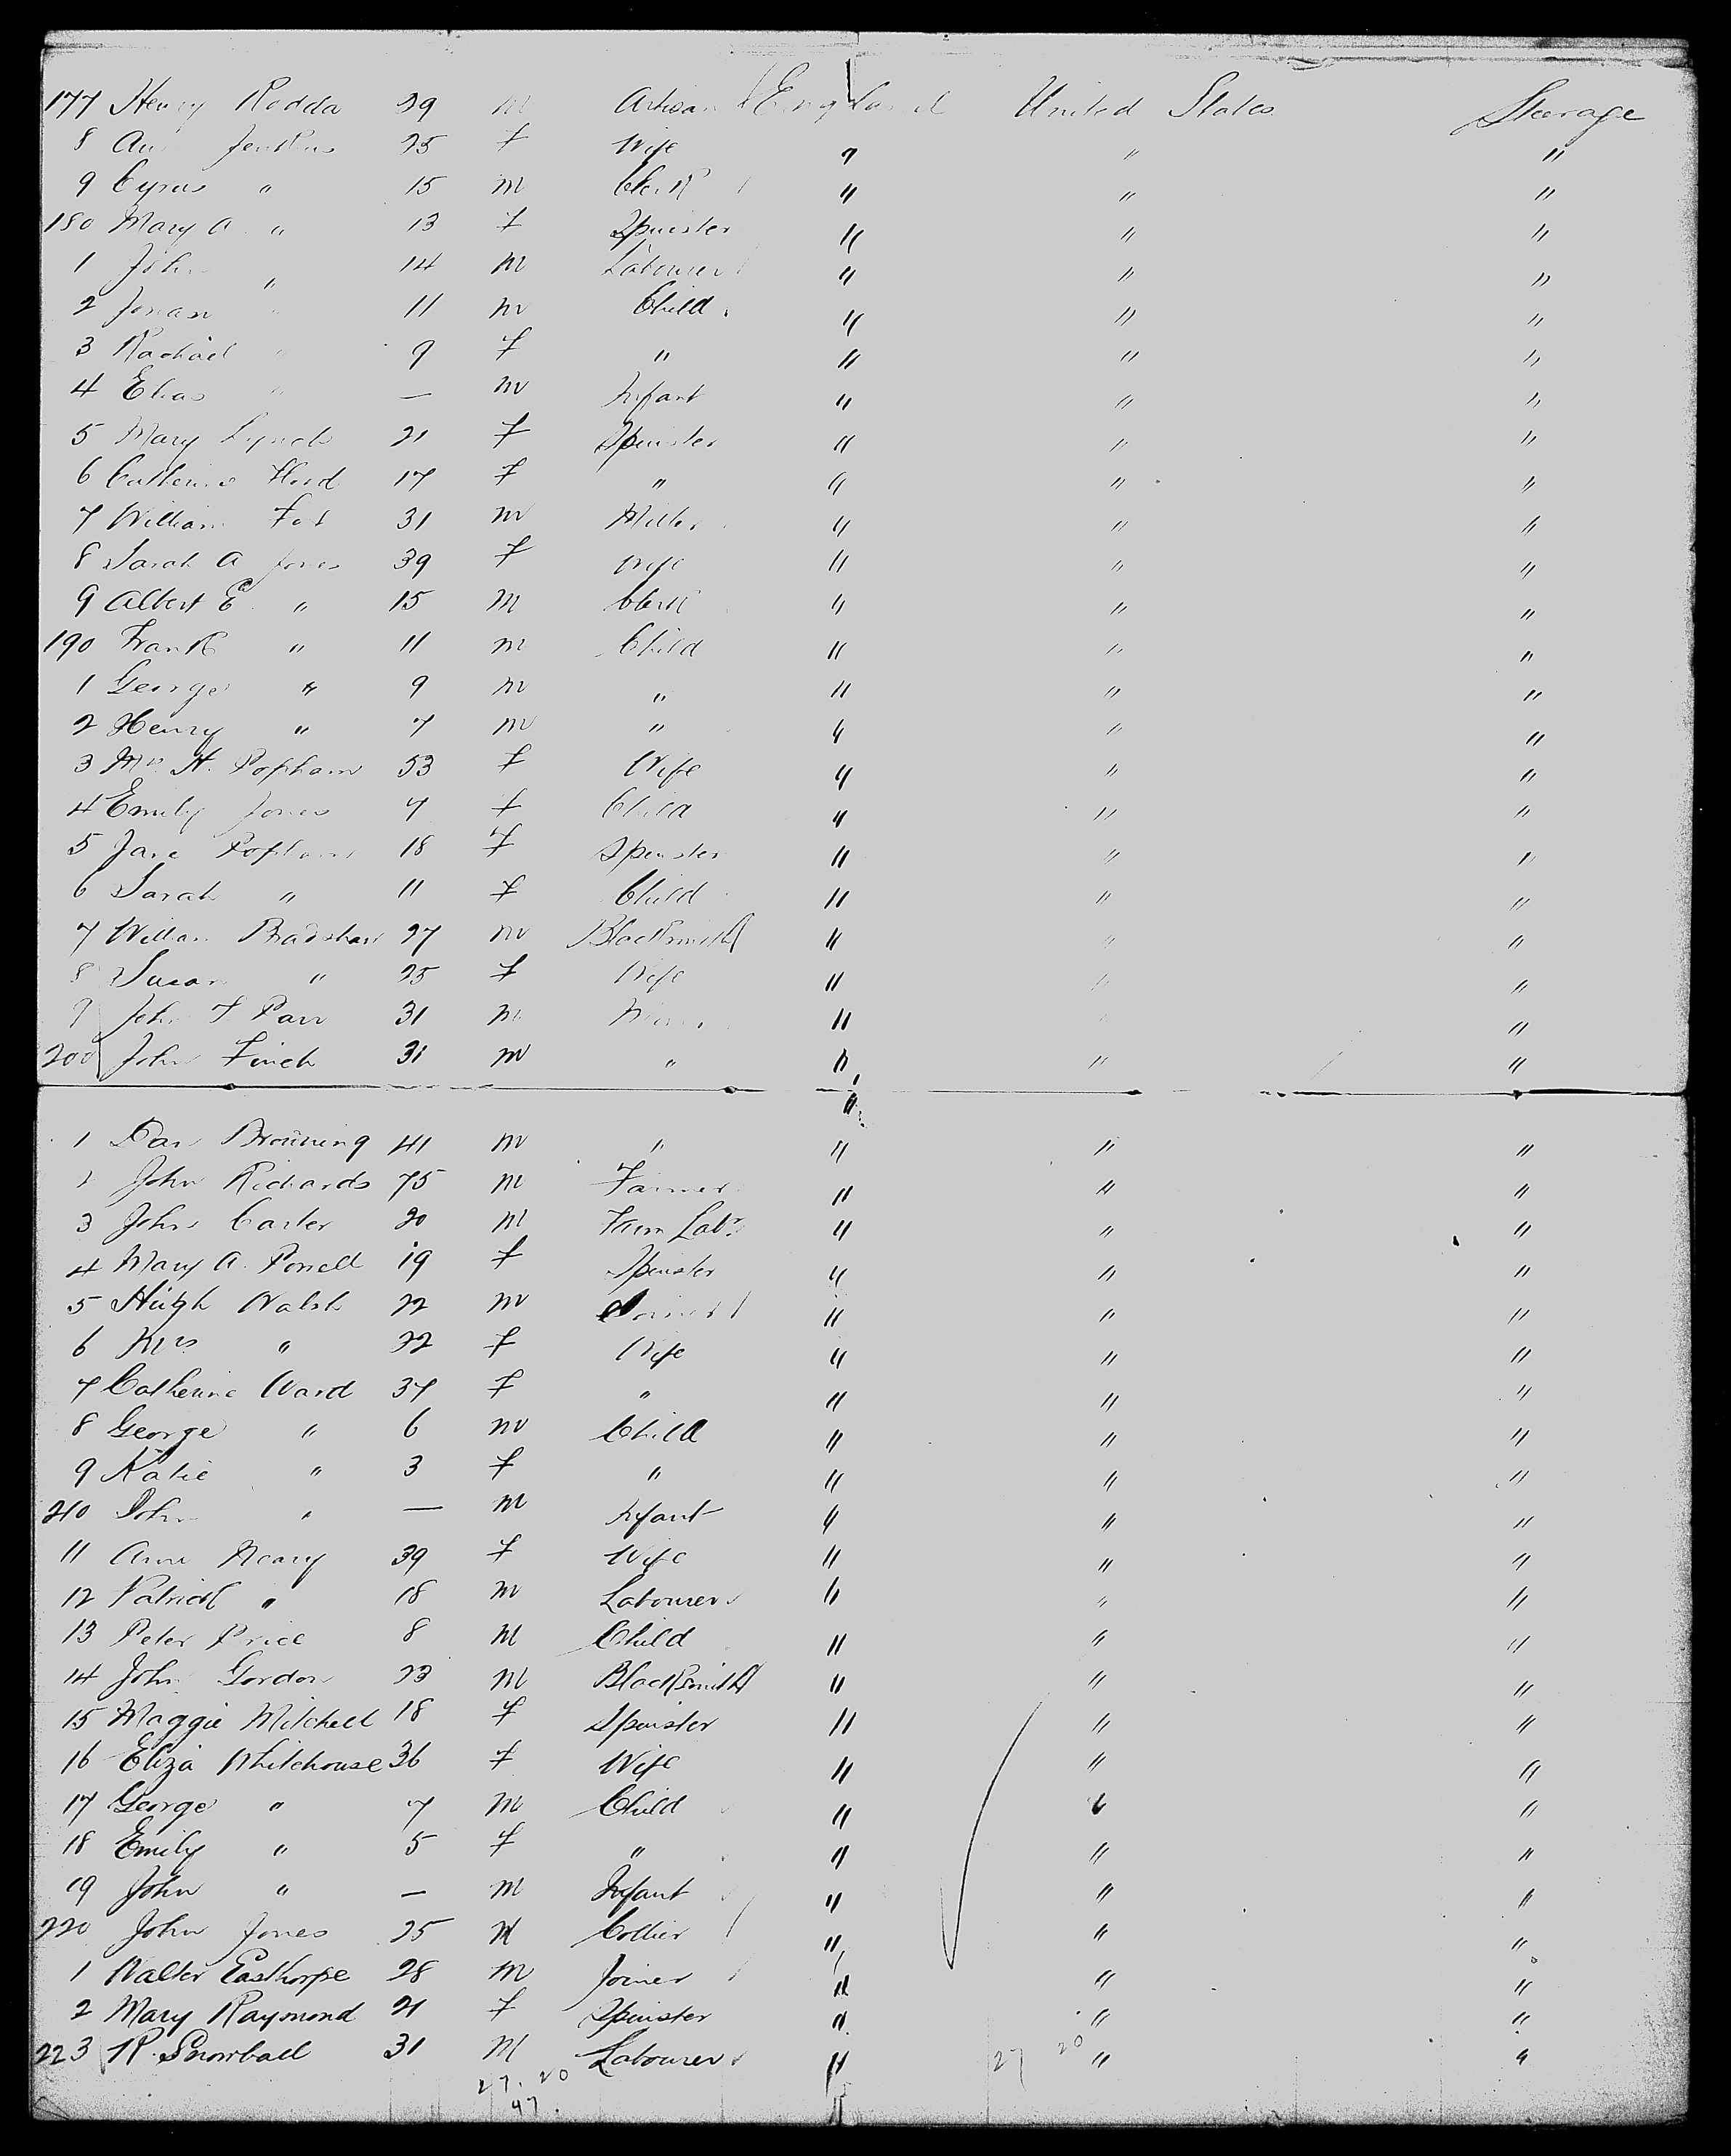 177 Henry Rodda 29 m Artisan England United States Steerage
8 Jenkins 25 f Wife " " "
9 Cyrus " 15 m Clerk " " "
180 Mary A " 13 f Spinster " " "
1 John " 14 m Labourer " " "
2 Jonas " 11 m Child " " "
3 Rachael " 9 f " " " "
4 Elias " — m Infant " " "
5 Mary Lynch 21 f Spinster " " "
6 Catherine 17 f " " " "
7 William 31 m Miller " " "
8 Sarah A Jones 39 f Wife " " "
9 Albert E " 15 m Clerk " " "
190 Frank " 11 m Child " " "
1 George " 9 m " " " "
2 Henry " 7 m " " " "
3 Mrs H. Popham 53 f Wife " " "
4 Emily Jones 7 f Child " " "
5 Jane Popham 18 f Spinster " " "
6 Sarah " 11 f Child " " "
7 William Bradshaw 27 m Blacksmith " " "
8 Susan " 25 f Wife " " "
9 John F Parr 31 m " "
200 John Finch 31 m " " " "
"
1 Dan Browning 41 m " " " "
2 John Richards 75 m Farmer " " "
3 John Carter 20 m Farm Labr " " "
4 Mary A. Powell 19 f Spinster " " "
5 Hugh Walsh 22 m Joiner " " "
6 Mrs " 22 f Wife " " "
7 Catherine Ward 37 f " " " "
8 George " 6 m Child " " "
9 Katie " 3 f " " " "
210 John " — m Infant " " "
11 Ann Neary 39 f Wife " " "
12 Patrick " 18 m Labourer " " "
13 Peter Price 8 m Child " " "
14 John Gordon 23 m Blacksmith " " "
15 Maggie Mitchell 18 f Spinster " " "
16 Eliza Whitehouse 36 f Wife " " "
17 George " 7 m Child " " "
18 Emily " 5 f " " " "
19 John " — m Infant " " "
220 John Jones 25 m Collier " " "
1 Walter Easthorpe 28 m Joiner " " "
2 Mary Raymond 21 f Spinster " " "
223 R. Snowball 31 m Labourer " " "
27. 20 27 20
47.